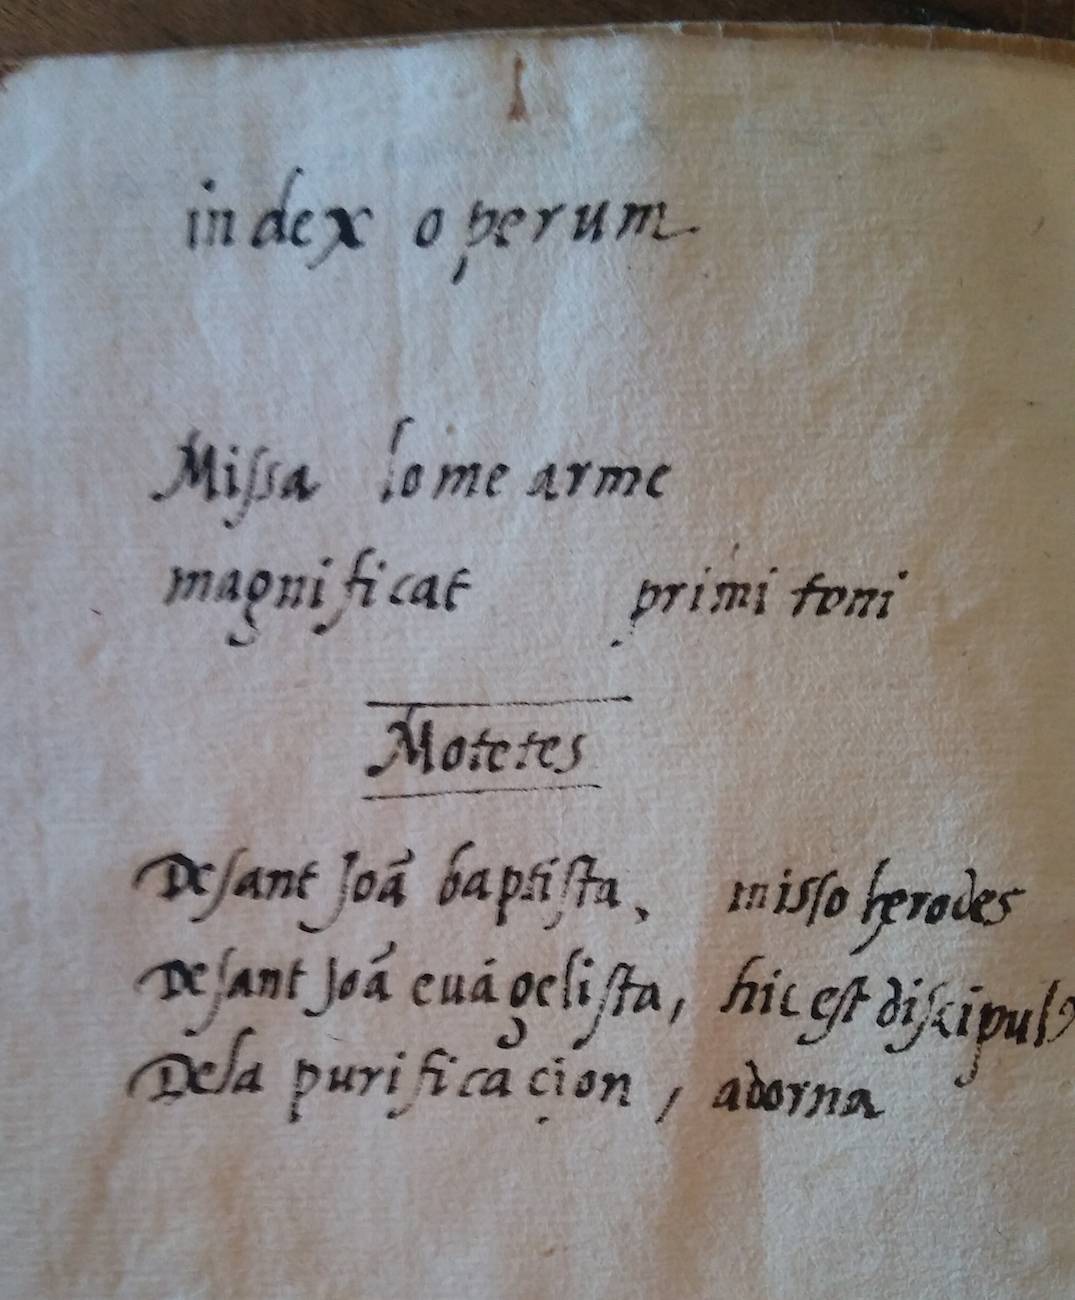 1
index operum
Missa lome arme
magnificat primi toni
Motetes
De sant Joã baptista, misso herodes
De sant Joã euãgelista, hic est discipulꝰ
Dela purificacion, adorna